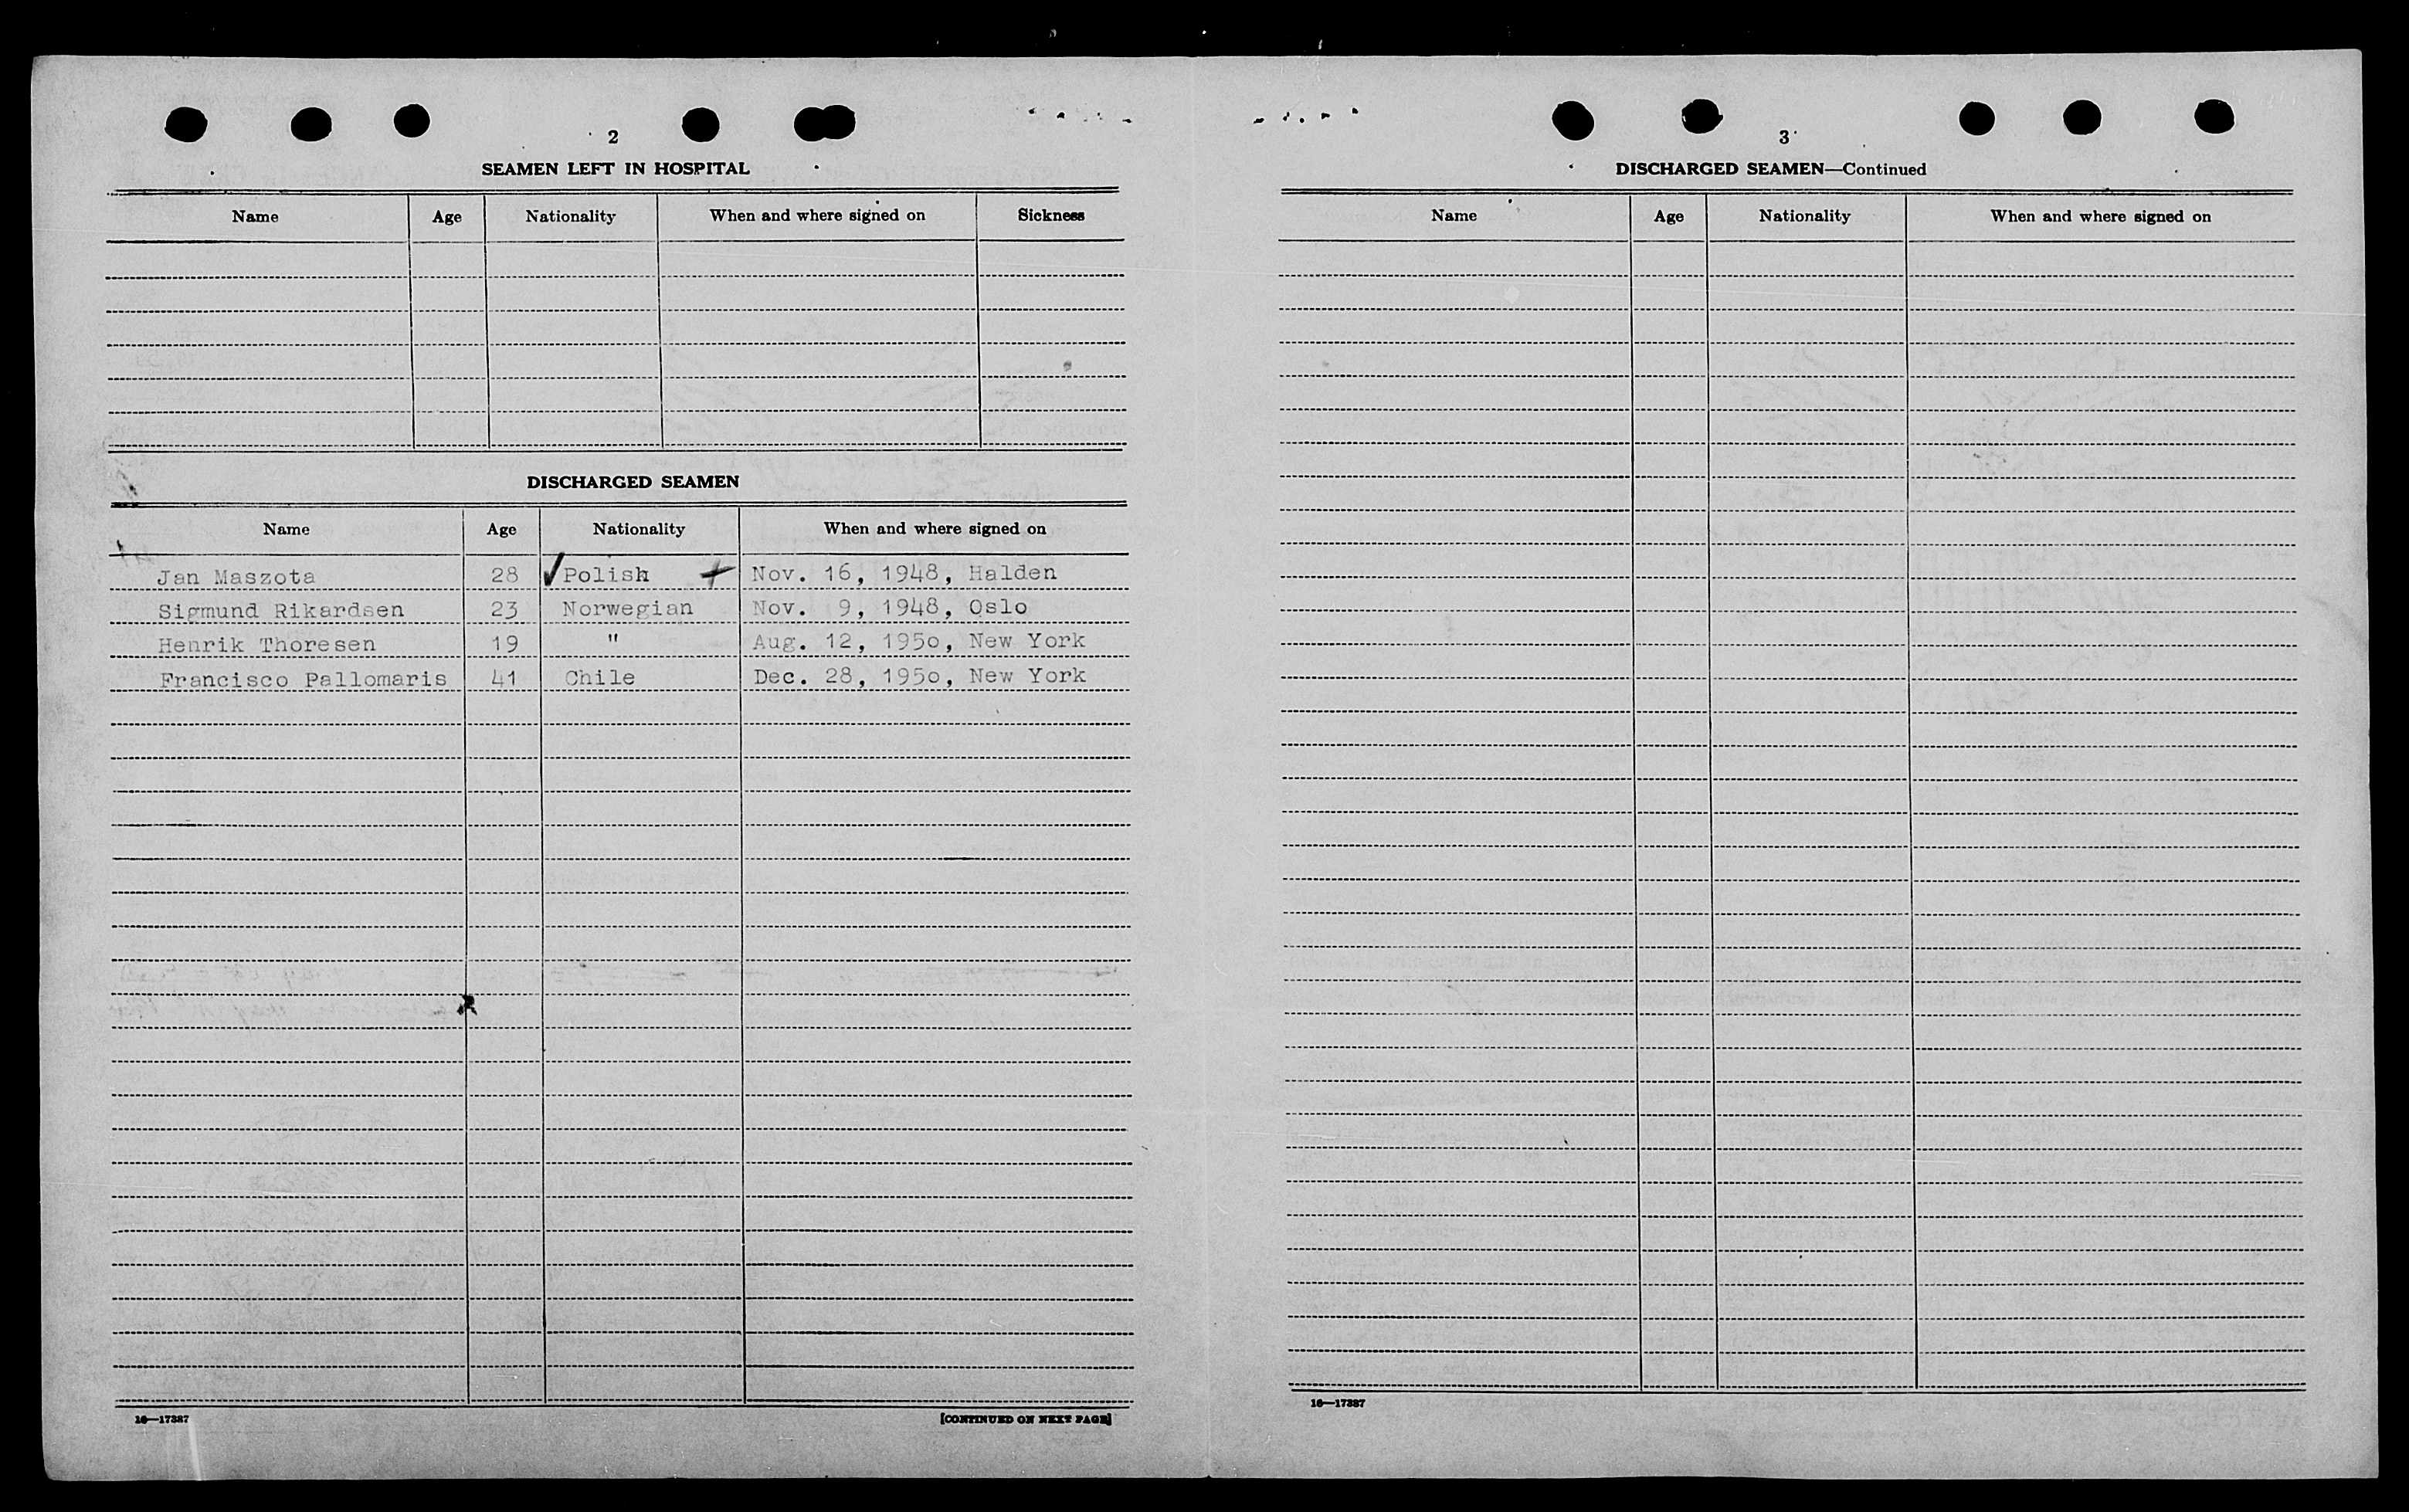 2
SEAMEN LEFT IN HOSPITAL
Name Age Nationality When and where signed on Sickness
DISCHARGED SEAMEN
Name Age Nationality When and where signed on
Jan Maszota 28 ✓Polish + Nov. 16, 1948, Halden
Sigmund Rikardsen 23 Norwegian Nov. 9, 1948, Oslo
Henrik Thoresen 19 " Aug. 12, 1950, New York
Francisco Pallomaris 41 Chile Dec. 28, 1950, New York
16—17387
[CONTINUED ON NEXT PAGE]
3
DISCHARGED SEAMEN—Continued
Name Age Nationality When and where signed on
16—17387